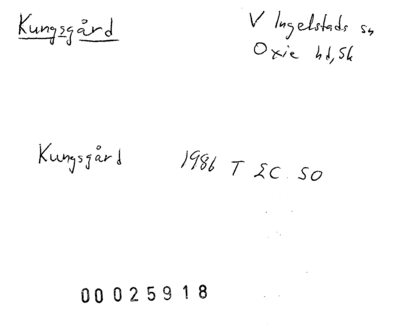 Kungsgård
V Ingelstads sn
Oxie hd, Sk
Kungsgård 1986 T ΣC. SO
00025918